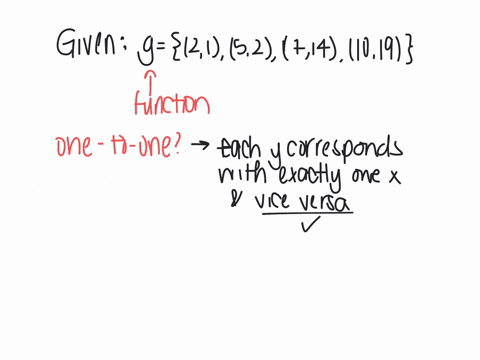 Given: g = {(2,1), (5,2), (7,14), (10,19)}
function
one-to-one? → each y corresponds
with exactly one x
& vice versa
✓